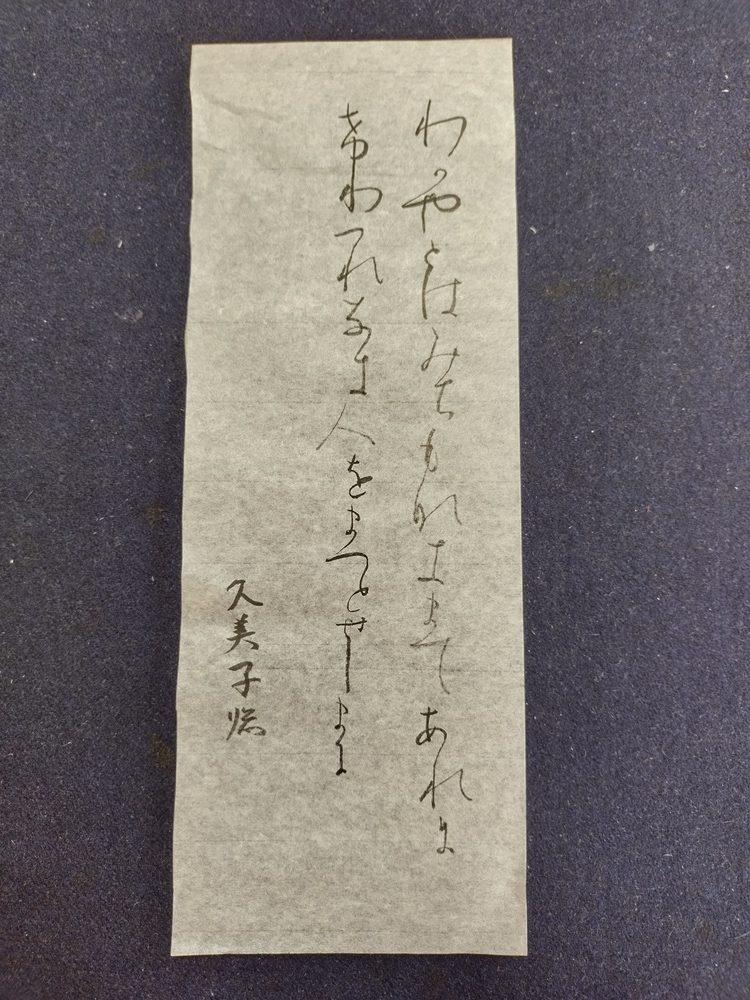 わかやとはみちもなきまてあれに
希りつれなき人をまつとせしまに
久美子臨